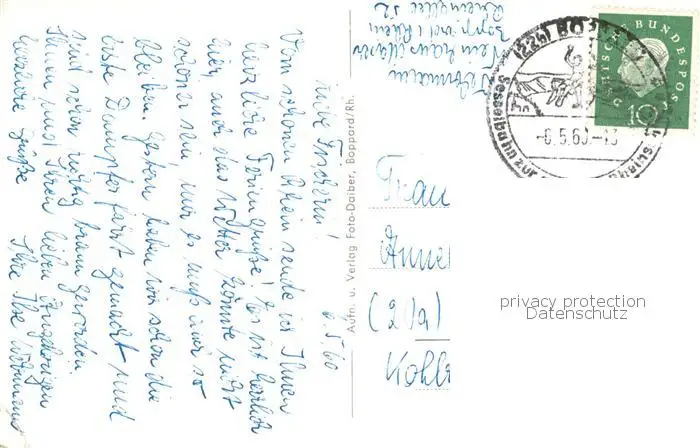 6.5.60
Liebe Frau Ischerin!
Vom schönen Rhein sende ich Ihnen
herzliche Feriengrüße! Es ist herrlich
hier, auch das Wetter könnte nicht
schöner sein, nur es muß immer so
bleiben. Gestern haben wir schon die
erste Dampferfahrt gemacht und
sind schon richtig braun geworden.
Ihnen und Ihren lieben Angehörigen
herzliche Grüße
Ihre Ilse
Aufn. u. Verlag Foto-Daiber, Boppard/Rh.
Boppard / Rhein
52
Frau
Anne
(21a)
(22b) BOPPARD
-6.5.60.-
Sesselbahn zur
DEUTSCHE BUNDESPOST
10
privacy protection
Datenschutz